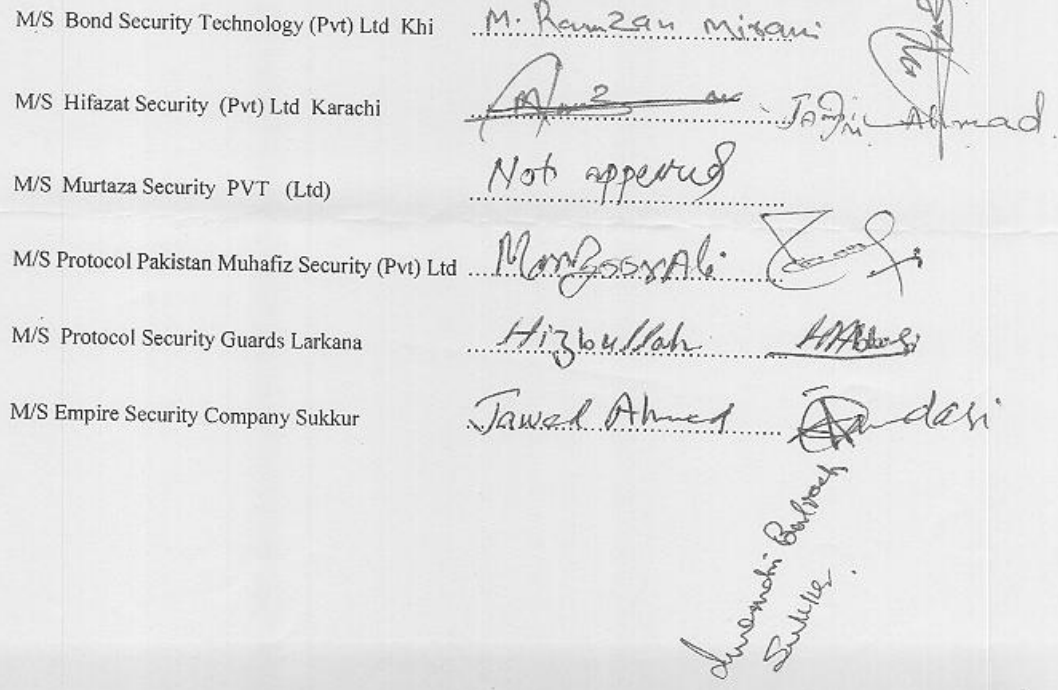 M/S Bond Security Technology (Pvt) Ltd Khi M. Ramzan Mirani
M/S Hifazat Security (Pvt) Ltd Karachi Ahmad
M/S Murtaza Security PVT (Ltd) Not appeared
M/S Protocol Pakistan Muhafiz Security (Pvt) Ltd Manzoor Ali
M/S Protocol Security Guards Larkana Hizbullah HAbbasi
M/S Empire Security Company Sukkur Jawed Ahmed
Sukkur.